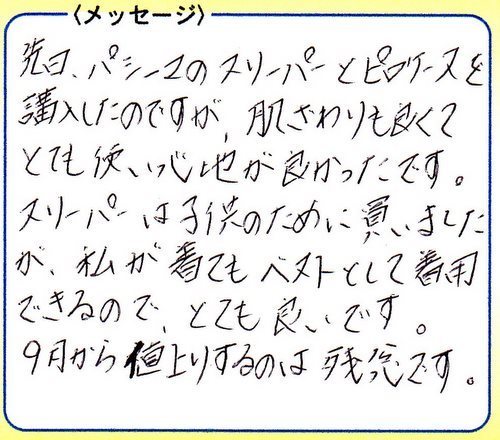 〈メッセージ〉
先日、パシーマのスリーパーとピロケースを
購入したのですが、肌ざわりも良くて
とても使い心地が良かったです。
スリーパーは子供のために買いました
が、私が着てもベストとして着用
できるので、とても良いです。
9月から値上りするのは残念です。